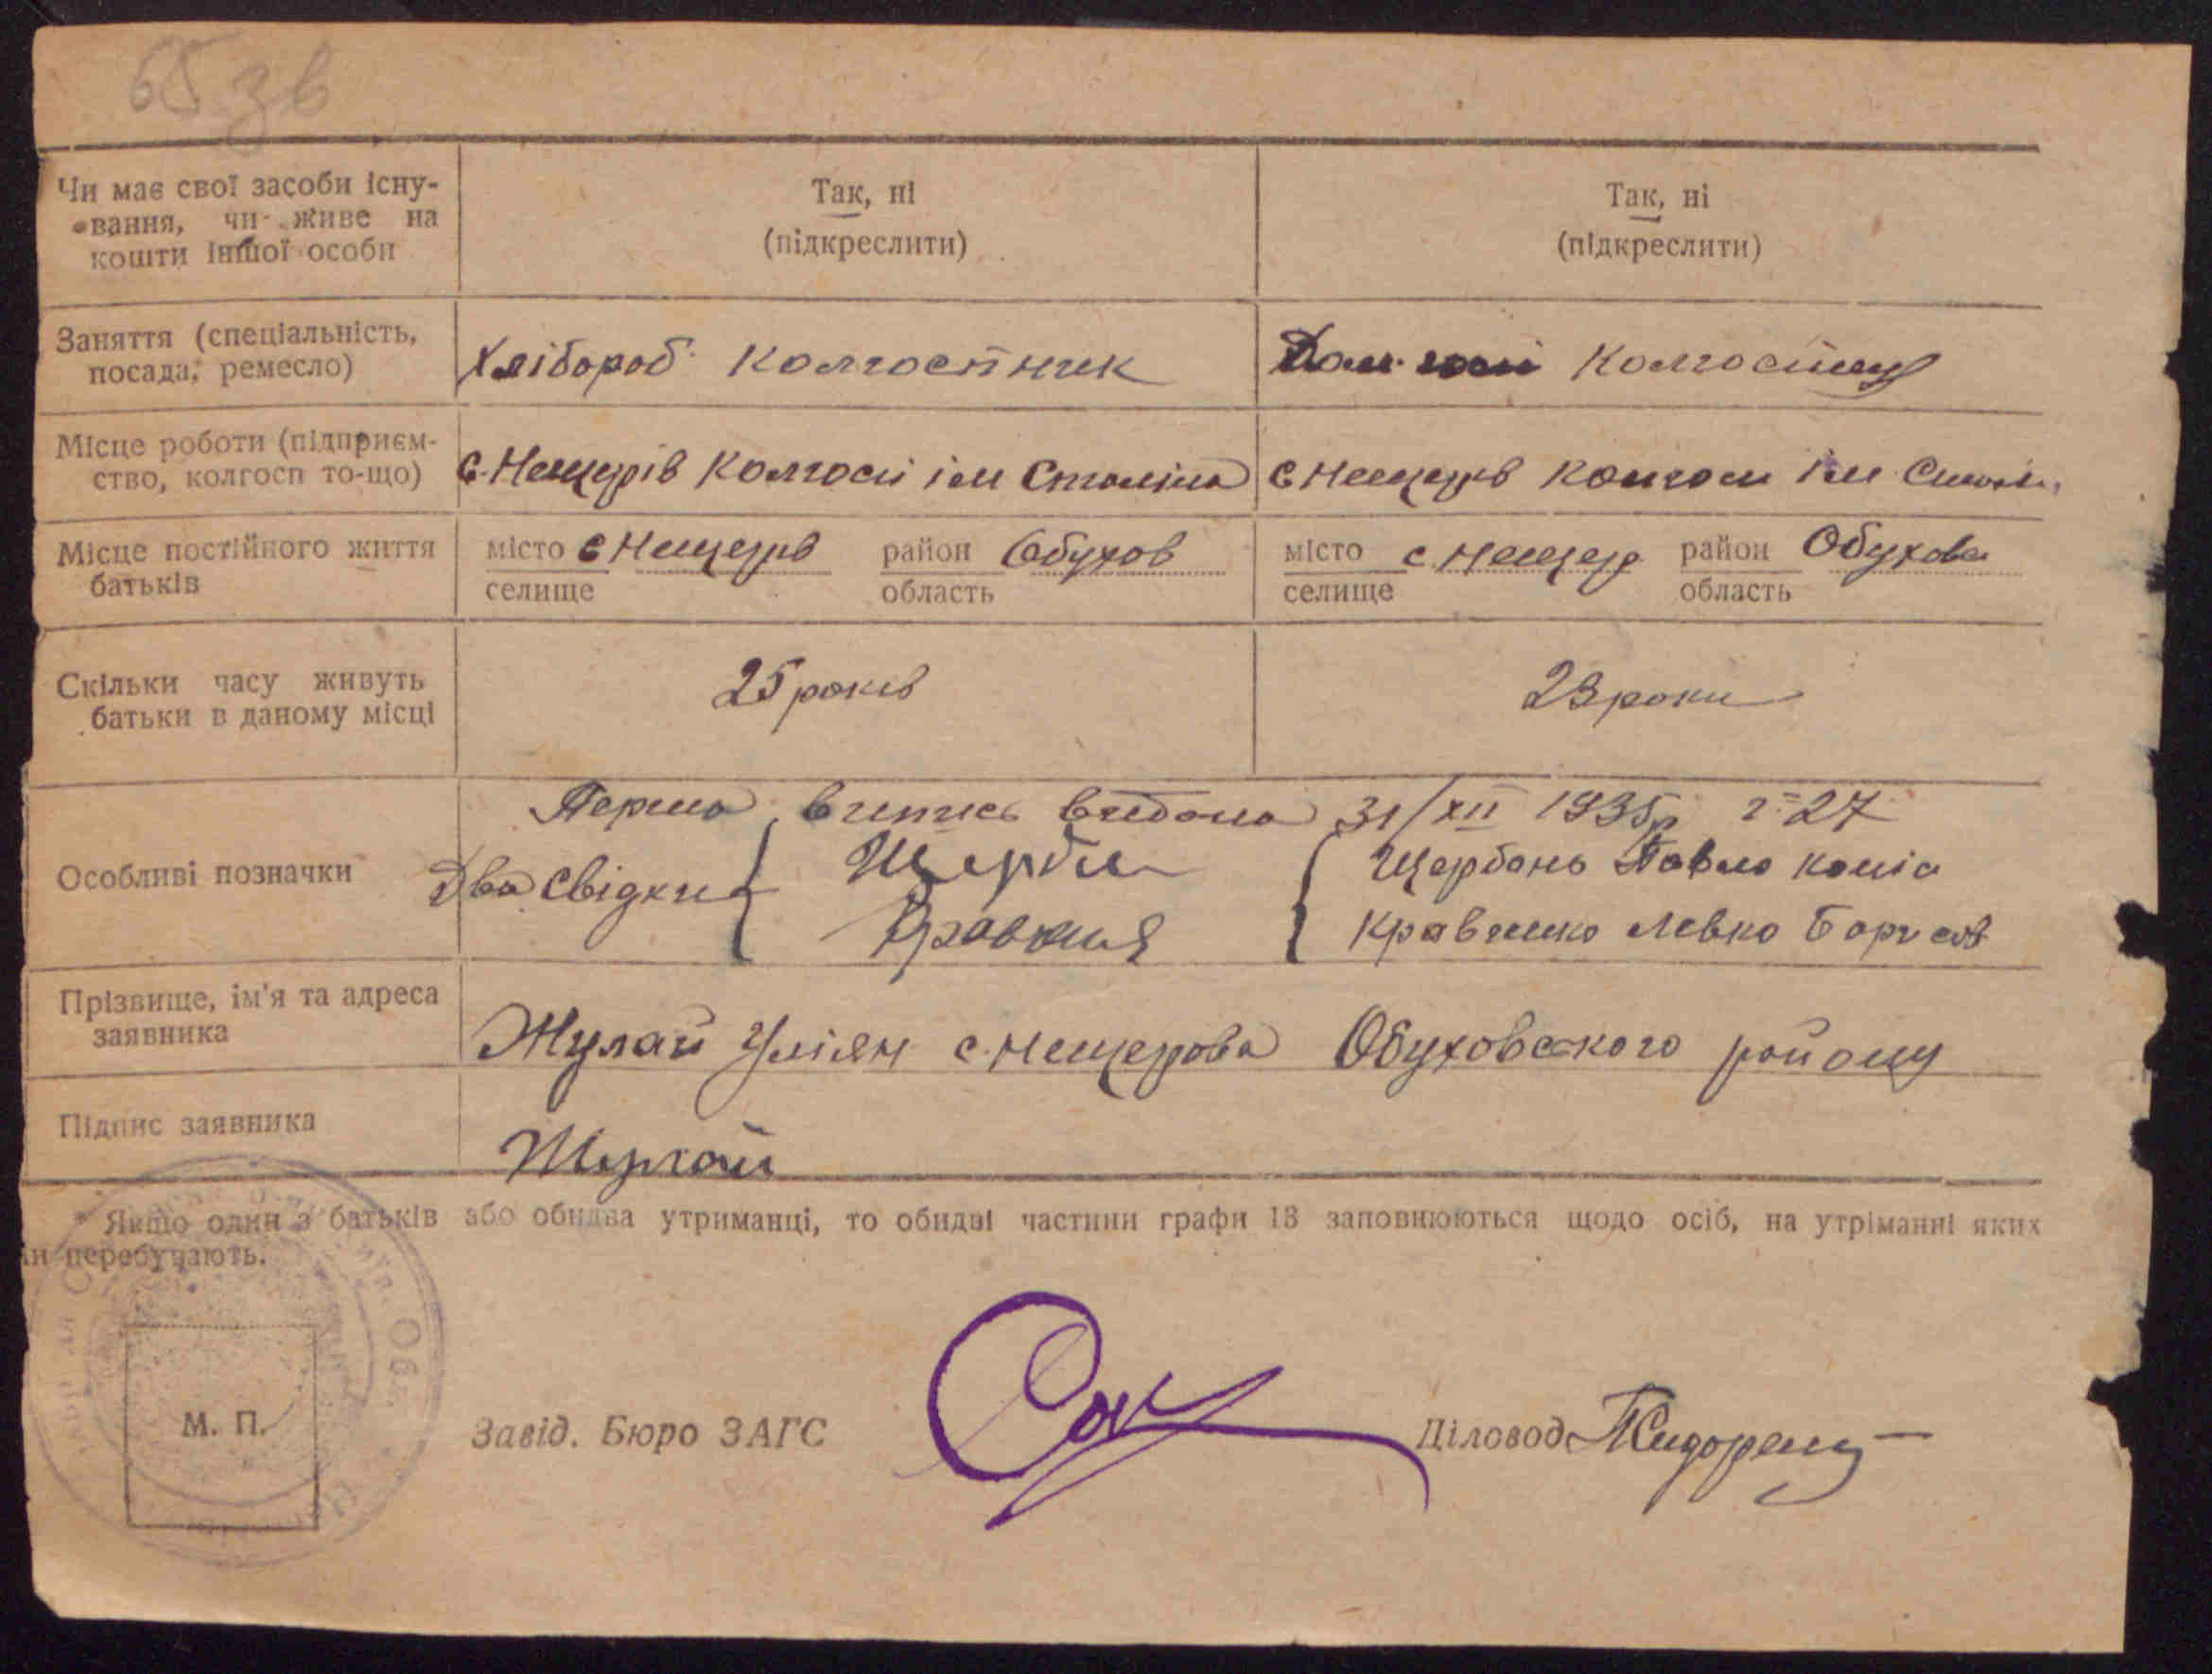 65 зв
Чи має свої засоби існу-
вання, чи живе на
кошти іншої особи
Так, ні
(підкреслити)
Так, ні
(підкреслити)
Заняття (спеціальність,
посада, ремесло)
Хлібороб колгоспник
колгоспниц
Місце роботи (підприєм-
ство, колгосп то-що)
с. Нещерів колгосп ім Сталіна
с Нещерів колгосп ім Сталін
Місце постійного життя
батьків
місто с Нещерів район Обухов
селище область
місто с. Нещер район Обухова
селище область
Скільки часу живуть
батьки в даному місці
25 років
23 роки
Особливі позначки
Перша випись видана 31/XII 1935р 27
Два свідки
Щербань Павло
Кравченко Левко Борисов
Прізвище, ім'я та адреса
заявника
Жулай Уліян с. Нещерова Обуховского району
Підпис заявника
Жулай
Якщо один з батьків або обидва утриманці, то обидві частини графи 13 заповнюються щодо осіб, на утріманні яких
ни перебувають.
М. П.
Завід. Бюро ЗАГС
Діловод